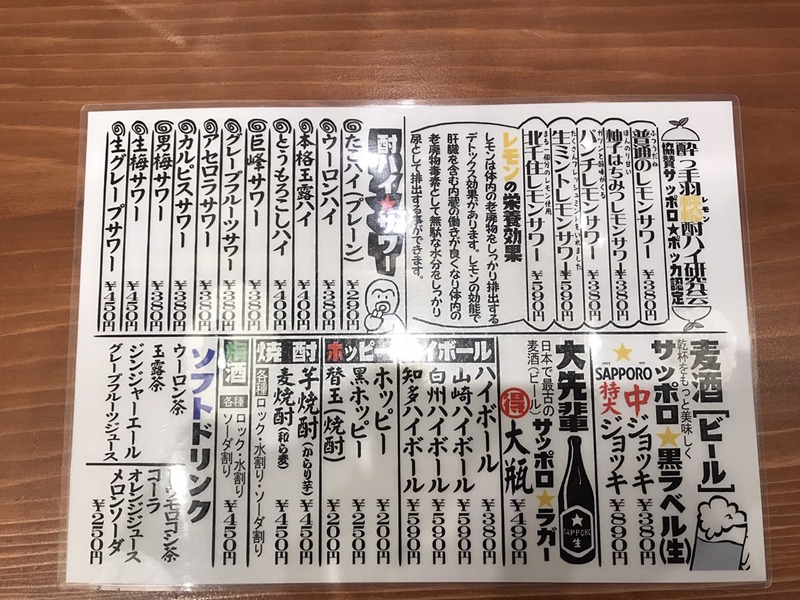 酔っ手羽 檸檬酎ハイ研究会
レモン
協賛サッポロ★ポッカ認定
ふつうだね
普通のレモンサワー ￥380円
ほんのり甘い
柚子はちみつレモンサワー ￥380円
パンチレモンサワー ￥380円
生ミントレモンサワー ￥590円
北千住レモンサワー ￥590円
レモンの栄養効果
レモンは体内の老廃物をしっかり排出する
デトックス効果があります。レモンの効能で
肝臓を含む内蔵の働きが良くなり体内の
老廃物毒素として無駄な水分をしっかり
尿として排出する事ができます。
酎ハイ★サワー
たこハイ(プレーン) ￥290円
ウーロンハイ ￥380円
本格玉露ハイ ￥400円
とうもろこしハイ ￥400円
巨峰サワー ￥380円
グレープフルーツサワー ￥380円
アセロラサワー ￥380円
カルピスサワー ￥380円
男梅サワー ￥380円
生梅サワー ￥450円
生グレープサワー ￥450円
麦酒[ビール]
乾杯をもっと美味しく
サッポロ★黒ラベル(生)
SAPPORO
中ジョッキ ￥380円
特大ジョッキ ￥890円
大先輩
日本で最古の
麦酒(ビール)
サッポロ★ラガー
得 大瓶 ￥490円
SAPPORO
生
ハイボール
ハイボール ￥380円
山崎ハイボール ￥590円
白州ハイボール ￥590円
知多ハイボール ￥590円
ホッピー
ホッピー ￥400円
黒ホッピー ￥400円
替玉(焼酎) ￥200円
焼酎
芋焼酎(からり芋) ￥450円
麦焼酎(和ら麦) ￥450円
各種 ロック・水割り・ソーダ割り
梅酒
各種 ロック・水割り
ソーダ割り ￥450円
ソフトドリンク
ウーロン茶
玉露茶
ジンジャーエール
グレープフルーツジュース
トウモロコシ茶
コーラ
オレンジジュース
メロンソーダ
￥250円